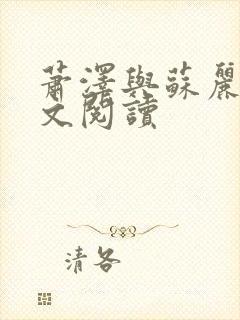 蕭澤與蘇麗
文閱讀
清各